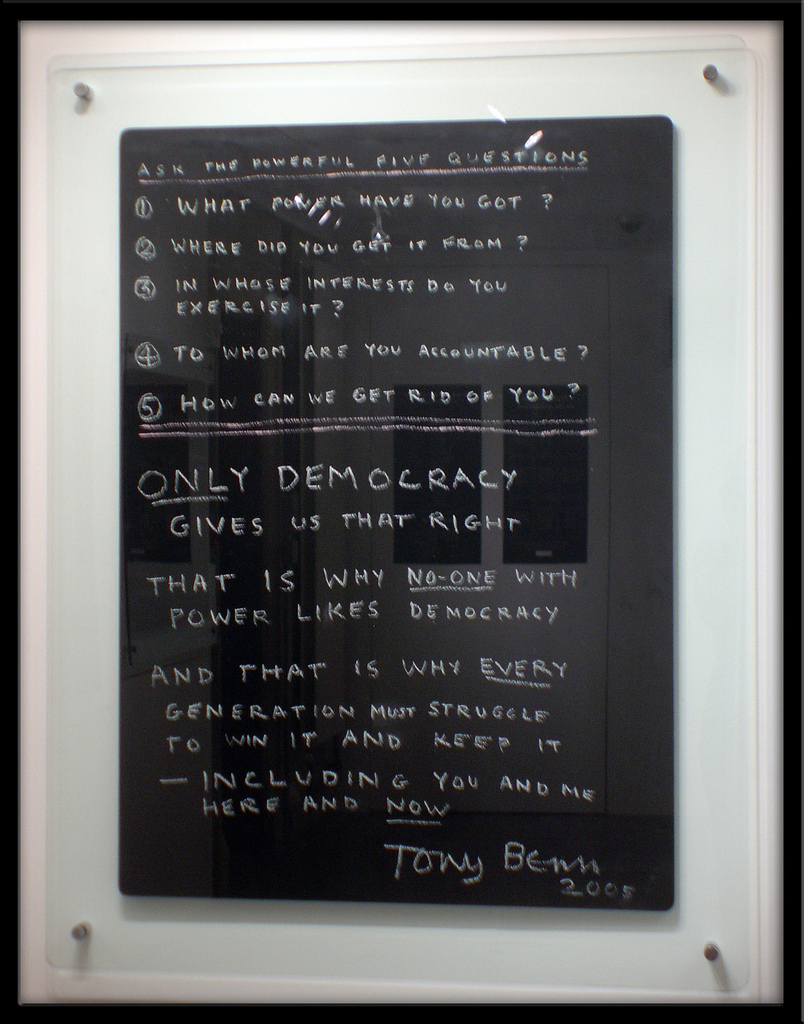 ASK THE POWERFUL FIVE QUESTIONS
① WHAT POWER HAVE YOU GOT ?
② WHERE DID YOU GET IT FROM ?
③ IN WHOSE INTERESTS DO YOU
EXERCISE IT ?
④ TO WHOM ARE YOU ACCOUNTABLE ?
⑤ HOW CAN WE GET RID OF YOU ?
ONLY DEMOCRACY
GIVES US THAT RIGHT
THAT IS WHY NO-ONE WITH
POWER LIKES DEMOCRACY
AND THAT IS WHY EVERY
GENERATION MUST STRUGGLE
TO WIN IT AND KEEP IT
— INCLUDING YOU AND ME
HERE AND NOW
Tony Benn
2005